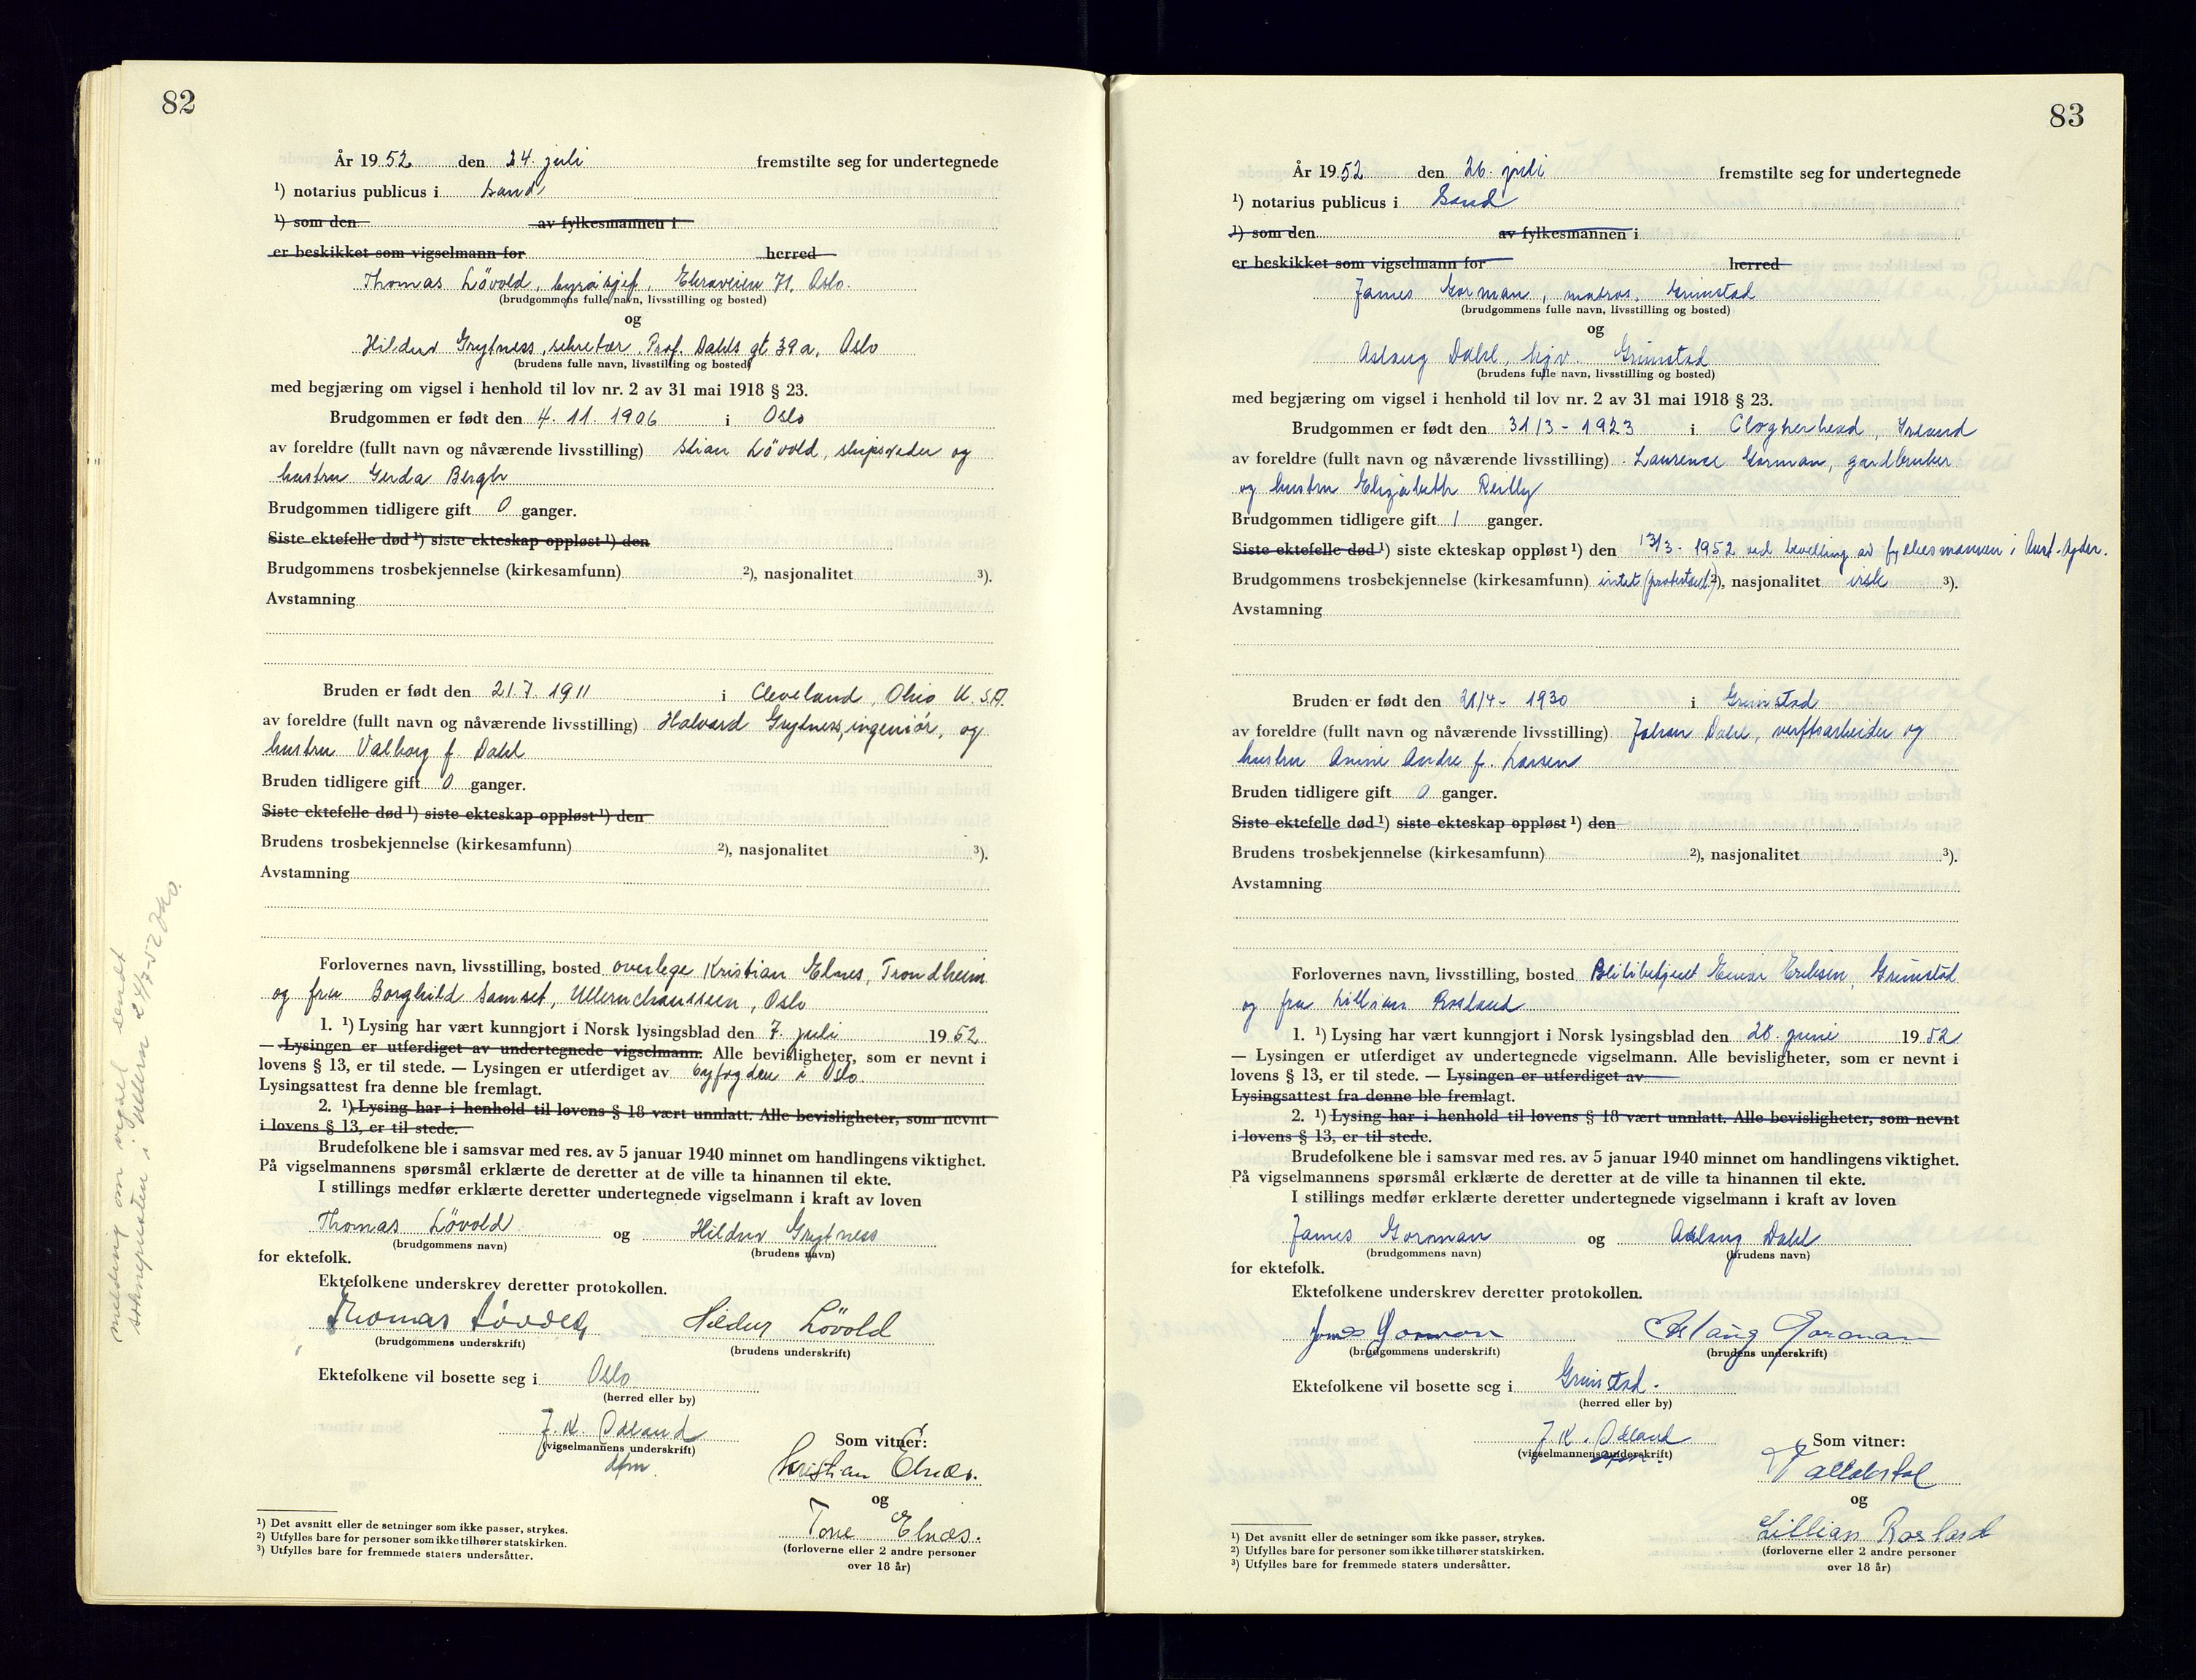 82
År 1952 den 24. juli fremstilte seg for undertegnede
¹) notarius publicus i Sand
¹) som den av fylkesmannen i
er beskikket som vigselmann for herred
Thomas Lövold, byråsjef, Ekraveien 71, Oslo.
(brudgommens fulle navn, livsstilling og bosted)
og
Hildur Grytness, sekretær, Prof. Dahls gt 39a, Oslo
(brudens fulle navn, livsstilling og bosted)
med begjæring om vigsel i henhold til lov nr. 2 av 31 mai 1918 § 23.
Brudgommen er født den 4. 11. 1906 i Oslo
av foreldre (fullt navn og nåværende livsstilling) Stian Lövold, skipsreder og
hustru Gerda Bergh
Brudgommen tidligere gift 0 ganger.
Siste ektefelle død ¹) siste ekteskap oppløst ¹) den
Brudgommens trosbekjennelse (kirkesamfunn) ²), nasjonalitet ³).
Avstamning
Bruden er født den 21.7. 1911 i Cleveland, Ohio U.S.A.
av foreldre (fullt navn og nåværende livsstilling) Halvard Grytness, ingeniör, og
hustru Valborg f. Dahl
Bruden tidligere gift 0 ganger.
Siste ektefelle død ¹) siste ekteskap oppløst ¹) den
Brudens trosbekjennelse (kirkesamfunn) ²), nasjonalitet ³).
Avstamning
Forlovernes navn, livsstilling, bosted overlege Kristian Elnes, Trondheim
og fru Borghild Samset, Ullernchausseen, Oslo
1. ¹) Lysing har vært kunngjort i Norsk lysingsblad den 7. juli 1952
— Lysingen er utferdiget av undertegnede vigselmann. Alle bevisligheter, som er nevnt i
lovens § 13, er til stede. — Lysingen er utferdiget av byfogden i Oslo.
Lysingsattest fra denne ble fremlagt.
2. ¹) Lysing har i henhold til lovens § 18 vært unnlatt. Alle bevisligheter, som nevnt
i lovens § 13, er til stede.
Brudefolkene ble i samsvar med res. av 5 januar 1940 minnet om handlingens viktighet.
På vigselmannens spørsmål erklærte de deretter at de ville ta hinannen til ekte.
I stillings medfør erklærte deretter undertegnede vigselmann i kraft av loven
Thomas Lövold og Hildur Grytness
(brudgommens navn) (brudens navn)
for ektefolk.
Ektefolkene underskrev deretter protokollen.
Thomas Lövold Hildur Lövold
(brudgommens underskrift) (brudens underskrift)
Ektefolkene vil bosette seg i Oslo
(herred eller by)
J. K. Ødland
(vigselmannens underskrift)
dfm.
Som vitner:
Kristian Elnæs.
og
Tone Elnæs.
(forloverne eller 2 andre personer
over 18 år)
¹) Det avsnitt eller de setninger som ikke passer, strykes.
²) Utfylles bare for personer som ikke tilhører statskirken.
³) Utfylles bare for fremmede staters undersåtter.
melding om vigsel sendt
sokneprester i Ullern 24/7-52
83
År 1952 den 26. juli fremstilte seg for undertegnede
¹) notarius publicus i Sand
¹) som den av fylkesmannen i
er beskikket som vigselmann for herred
James Gorman, matros, Grimstad
(brudgommens fulle navn, livsstilling og bosted)
og
Aslaug Dahl, hjv. Grimstad
(brudens fulle navn, livsstilling og bosted)
med begjæring om vigsel i henhold til lov nr. 2 av 31 mai 1918 § 23.
Brudgommen er født den 31/3 - 1923 i Clogherhead, Ireland
av foreldre (fullt navn og nåværende livsstilling) Laurence Gorman, gardbruker
og hustru Elizabeth Reilly
Brudgommen tidligere gift 1 ganger.
Siste ektefelle død ¹) siste ekteskap oppløst ¹) den 13/3 - 1952 ved bevilling av fylkesmannen i Aust-Agder.
Brudgommens trosbekjennelse (kirkesamfunn) intet (protestant) ²), nasjonalitet irsk ³).
Avstamning
Bruden er født den 21/4 - 1930 i Grimstad
av foreldre (fullt navn og nåværende livsstilling) Johan Dahl, verftsarbeider og
hustru Anine Andre f. Larsen
Bruden tidligere gift 0 ganger.
Siste ektefelle død ¹) siste ekteskap oppløst ¹) den
Brudens trosbekjennelse (kirkesamfunn) ²), nasjonalitet ³).
Avstamning
Forlovernes navn, livsstilling, bosted Politibetjent Einar Eriksen, Grimstad
og fru Lillian Rosland
1. ¹) Lysing har vært kunngjort i Norsk lysingsblad den 28. juni 1952
— Lysingen er utferdiget av undertegnede vigselmann. Alle bevisligheter, som er nevnt i
lovens § 13, er til stede. — Lysingen er utferdiget av
Lysingsattest fra denne ble fremlagt.
2. ¹) Lysing har i henhold til lovens § 18 vært unnlatt. Alle bevisligheter, som nevnt
i lovens § 13, er til stede.
Brudefolkene ble i samsvar med res. av 5 januar 1940 minnet om handlingens viktighet.
På vigselmannens spørsmål erklærte de deretter at de ville ta hinannen til ekte.
I stillings medfør erklærte deretter undertegnede vigselmann i kraft av loven
James Gorman og Aslaug Dahl
(brudgommens navn) (brudens navn)
for ektefolk.
Ektefolkene underskrev deretter protokollen.
James Gorman Aslaug Gorman
(brudgommens underskrift) (brudens underskrift)
Ektefolkene vil bosette seg i Grimstad.
(herred eller by)
J. K. Ødland
(vigselmannens underskrift)
Som vitner:
og
Lillian Rosland
(forloverne eller 2 andre personer
over 18 år)
¹) Det avsnitt eller de setninger som ikke passer, strykes.
²) Utfylles bare for personer som ikke tilhører statskirken.
³) Utfylles bare for fremmede staters undersåtter.